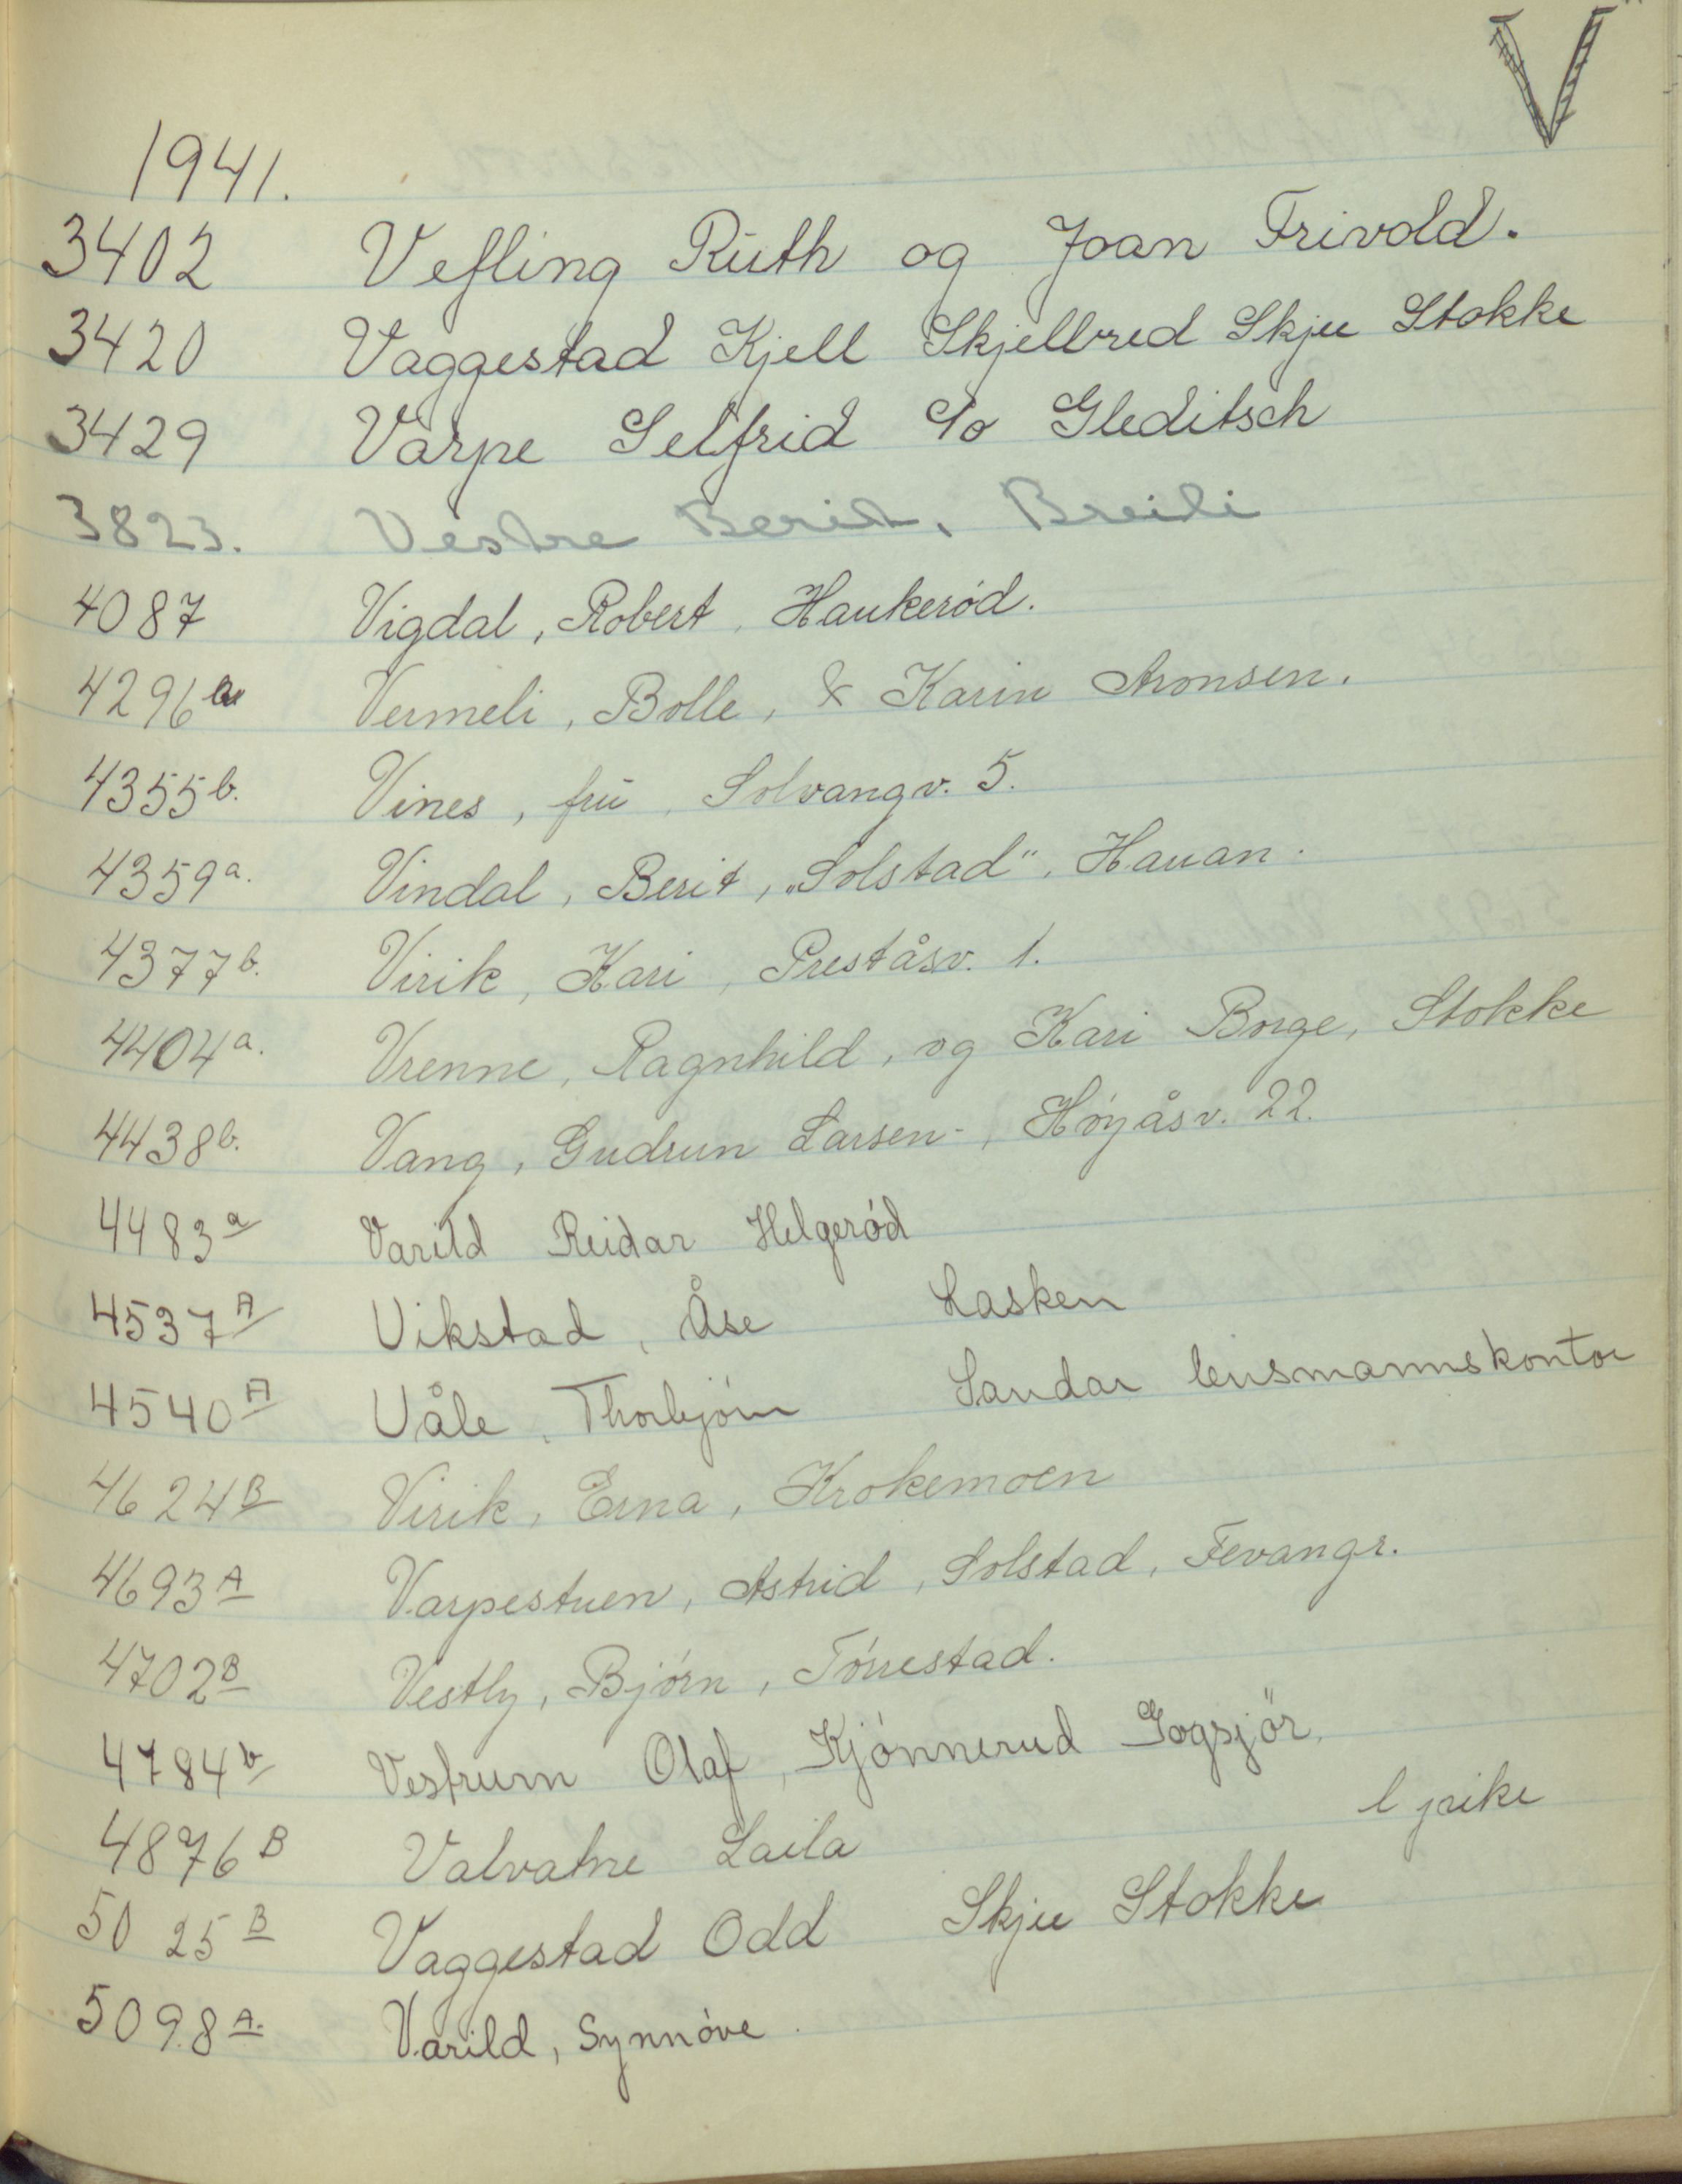 V
1941.
3402 Vefling Ruth og Joan Trivold.
3420 Vaggestad Kjell Skjellbred Skjee Stokke
3429 Varpe Selfrid c/o Gleditsch
3823. Vestre Berit, Breili
4087 Vigdal, Robert, Haukerød.
4296 a Vermeli, Bolle, & Karin Aronsen.
4355 b. Vines, fru, Solvangv. 5.
4359 a. Vindal, Berit, „Solstad", Hauan.
4377 b. Virik, Kari, Preståsv. 1.
4404 a. Vrenne, Ragnhild, og Kari Borge, Stokke
4438 b. Vang, Gudrun Larsen-, Høyåsv. 22.
4483 a Varild Reidar Helgerød
4537 A Vikstad, Åse Lasken
4540 A Våle, Thorbjørn Sandar lensmannskontor
4624 B Virik, Erna, Krokemoen
4693 A Varpestuen, Astrid, Solstad, Fevangr.
4702 B Vestly, Bjørn, Tørrestad.
4784 b Vestrum Olaf, Kjønnerud Gogsjør,
4876 B Valvatne Laila
5025 B Vaggestad Odd Skjee Stokke
5098 A. Varild, Synnøve.